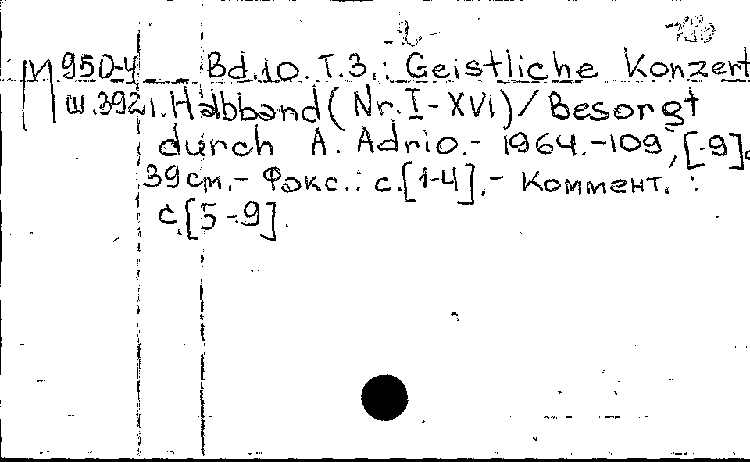 -2-
М 95D-4 Bd.10. T.3.: Geistliche Konzert
ш.392 1. Halbband (Nr. I-XVI) / Besorgt
durch A. Adrio.- 1964.-109, [-9]с
39 cm.- Факс.: с.[1-4].- Коммент. :
с.[5-9].